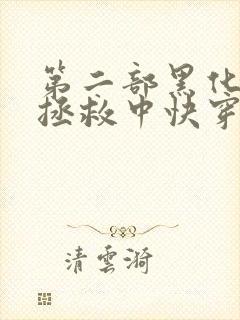 第二部黑化
拯救中快穿
清雲漪